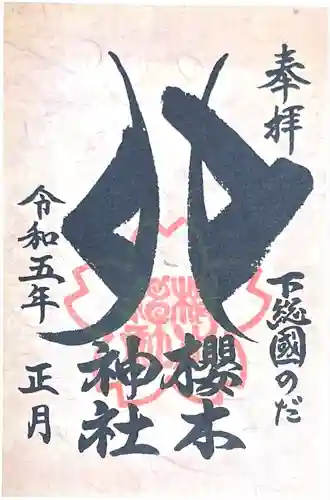 奉拝
下総國のだ
櫻木
神社
令和五年 正月